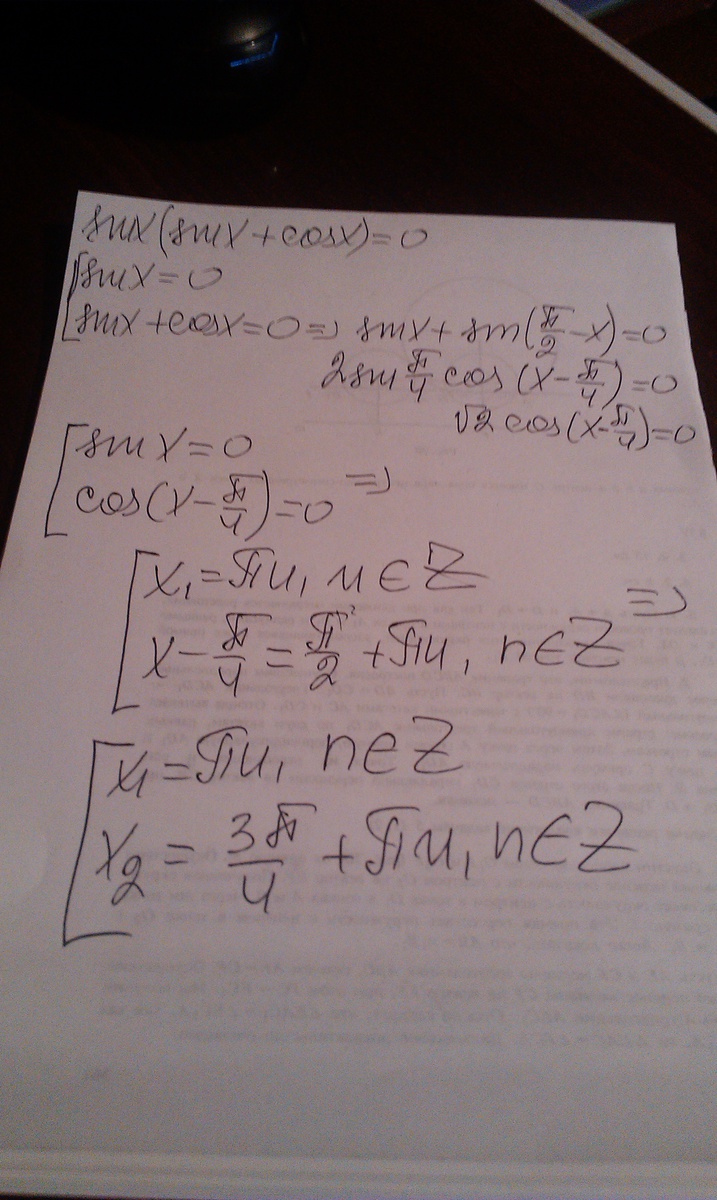 sinx(sinx+cosx)=0
[sinx=0
[sinx+cosx=0 ⇒ sinx+sin(π/2-x)=0
2sin π/4 cos(x-π/4)=0
√2 cos(x-π/4)=0
[sin x=0
[cos(x-π/4)=0 ⇒
[x₁=πn, n∈Z
[x-π/4=π/2+πn, n∈Z ⇒
[x₁=πn, n∈Z
[x₂=3π/4+πn, n∈Z